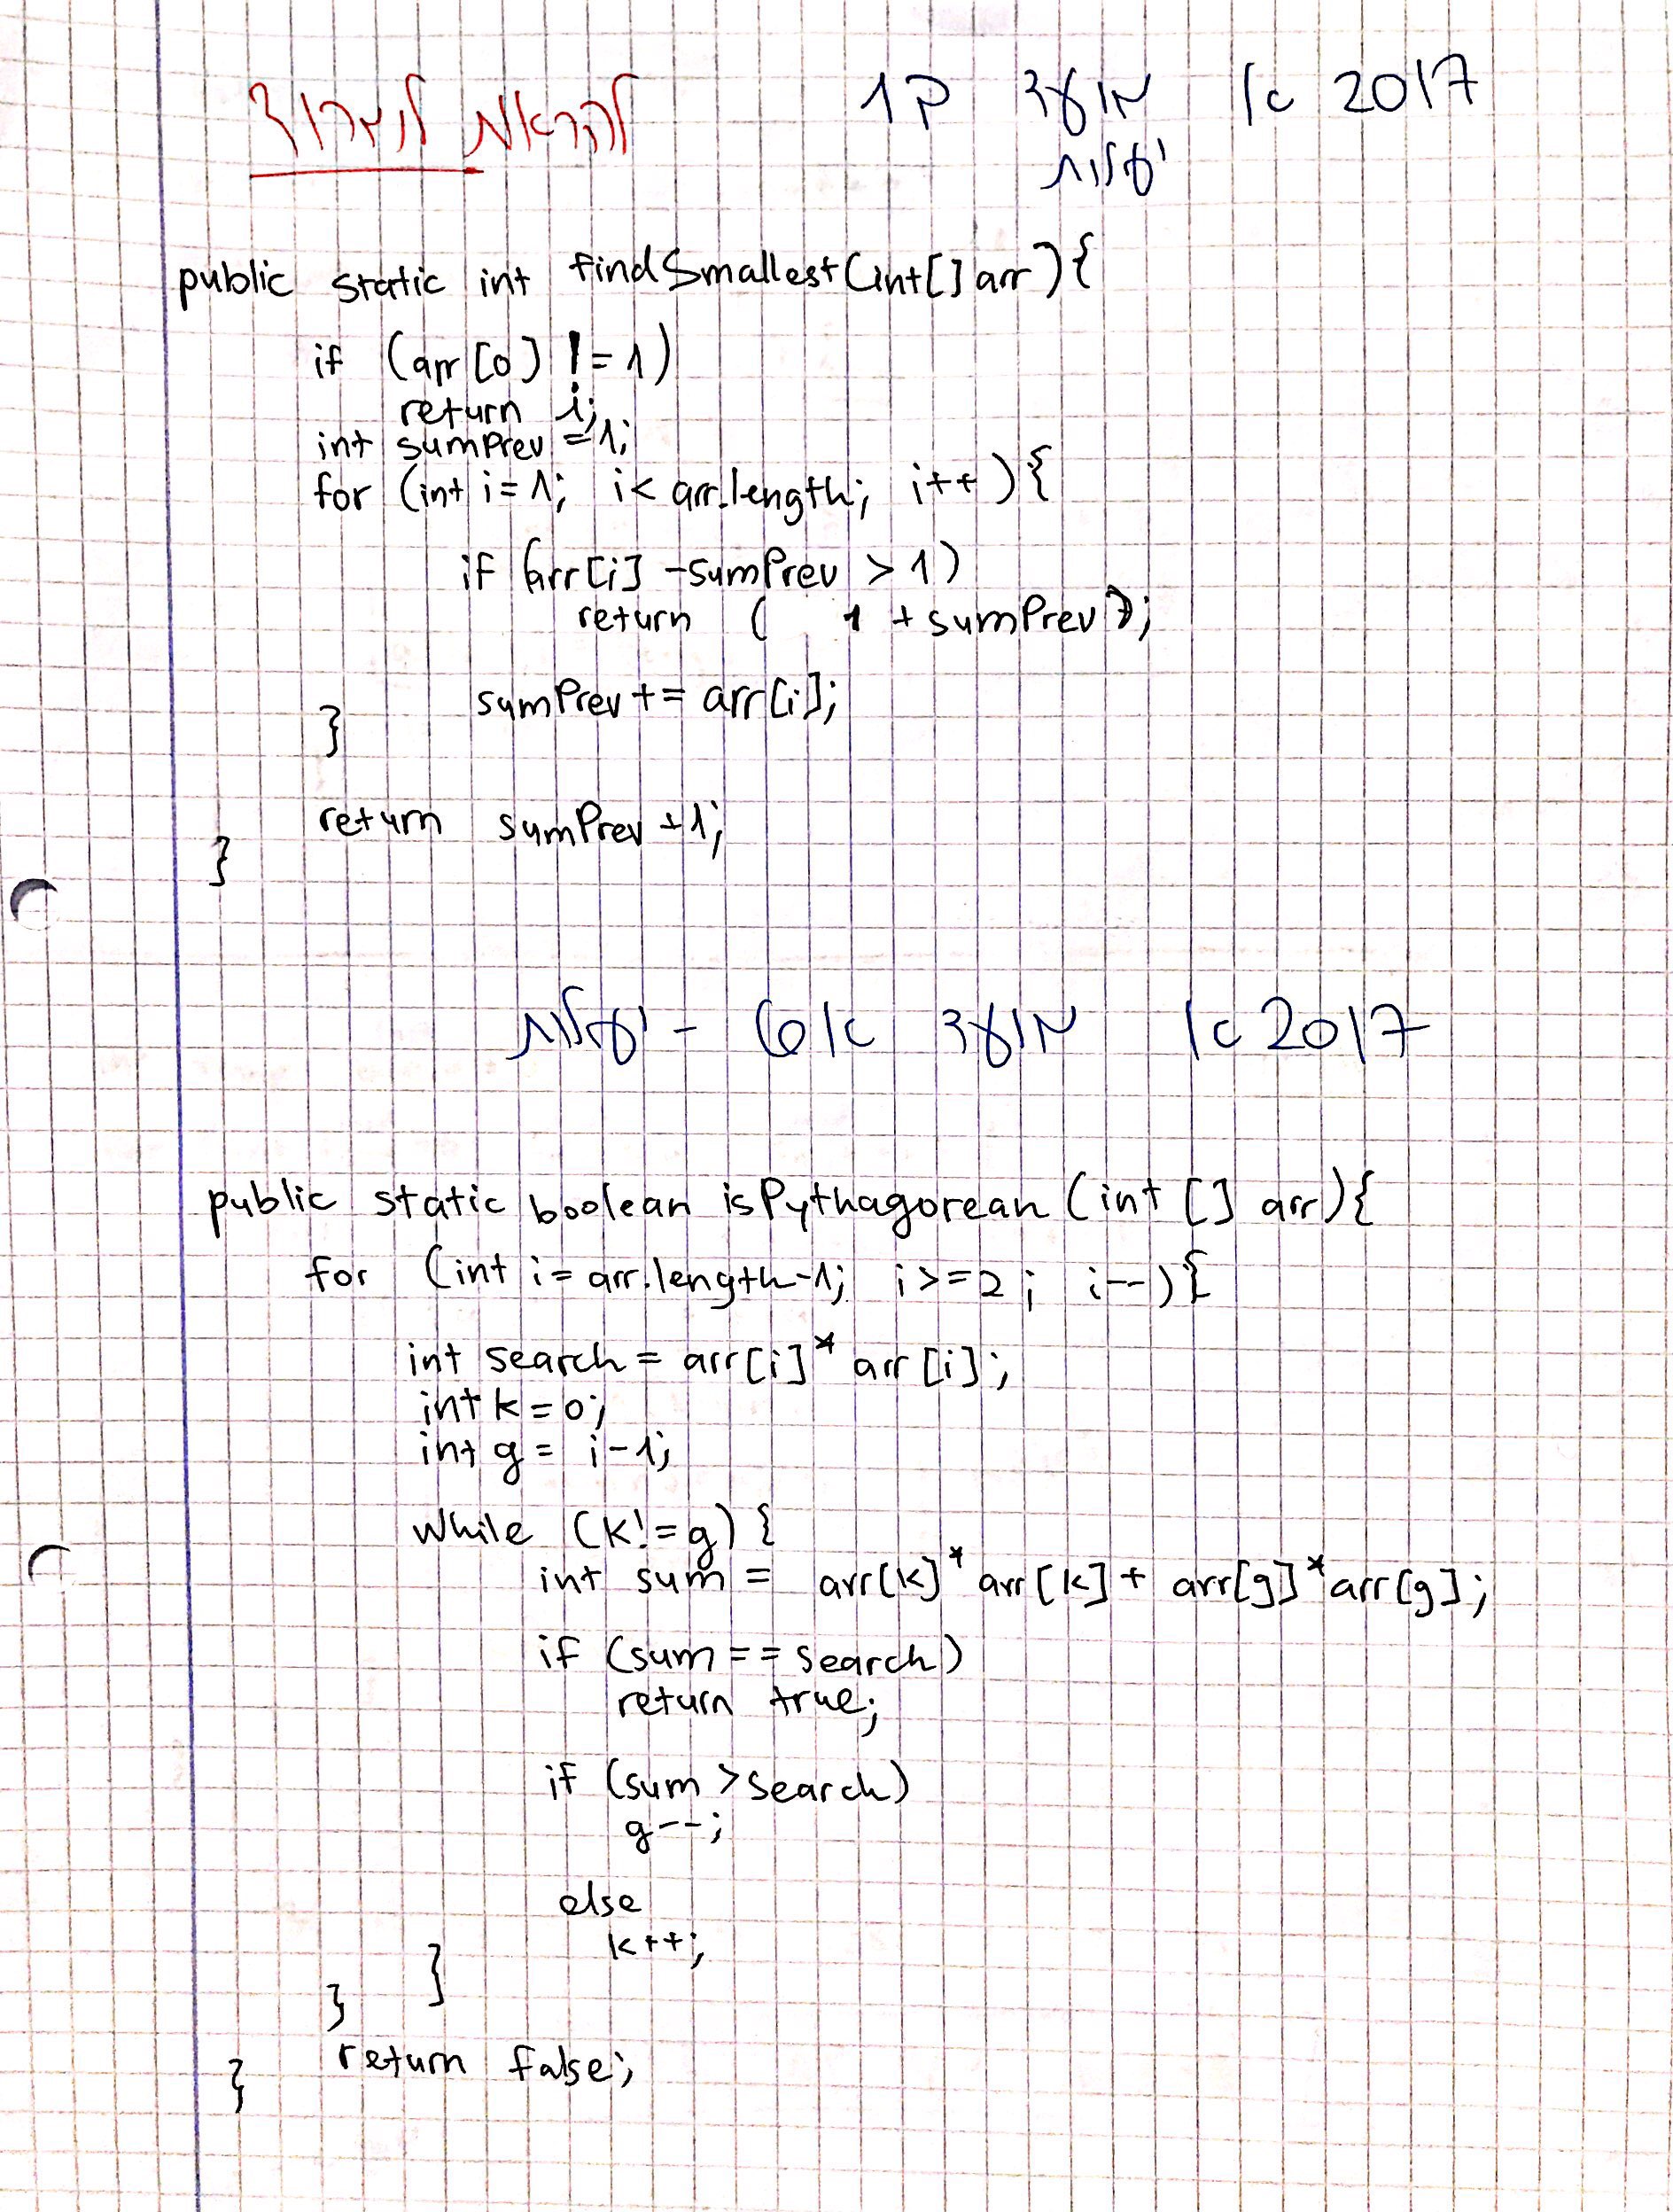 2017 א מועד קר להראות לנמרוד
יעילות
public static int findSmallest(int[] arr){
if (arr[0] != 1)
return i;
int sumPrev = 1;
for (int i = 1; i < arr.length; i++){
if (arr[i] - sumPrev > 1)
return ( 1 + sumPrev);
sumPrev += arr[i];
}
return sumPrev + 1;
}
2017 א מועד - יעילות
public static boolean isPythagorean (int [] arr){
for (int i = arr.length-1; i >= 2; i--){
int search = arr[i] * arr[i];
int k = 0;
int g = i-1;
while (k != g) {
int sum = arr[k] * arr[k] + arr[g] * arr[g];
if (sum == search)
return true;
if (sum > search)
g--;
else
k++;
}
}
return false;
}